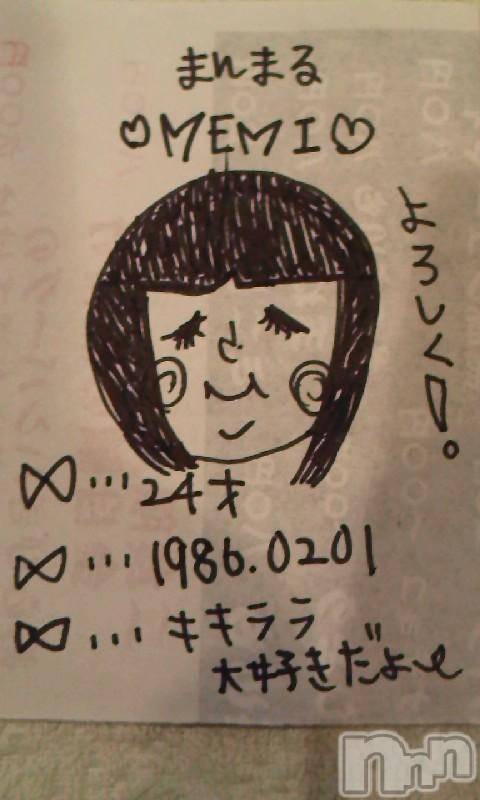 まんまる
♡MEMI♡
よろしく!。
⋈…24才
⋈…1986.0201
⋈…キキララ
大好きだよe
nnn